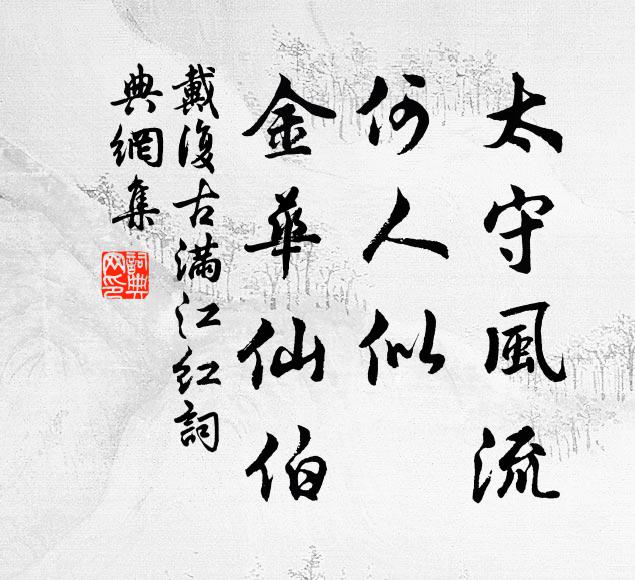 太守風流
何人似
金華仙伯
戴復古滿江紅詞
典網集
詞典網印